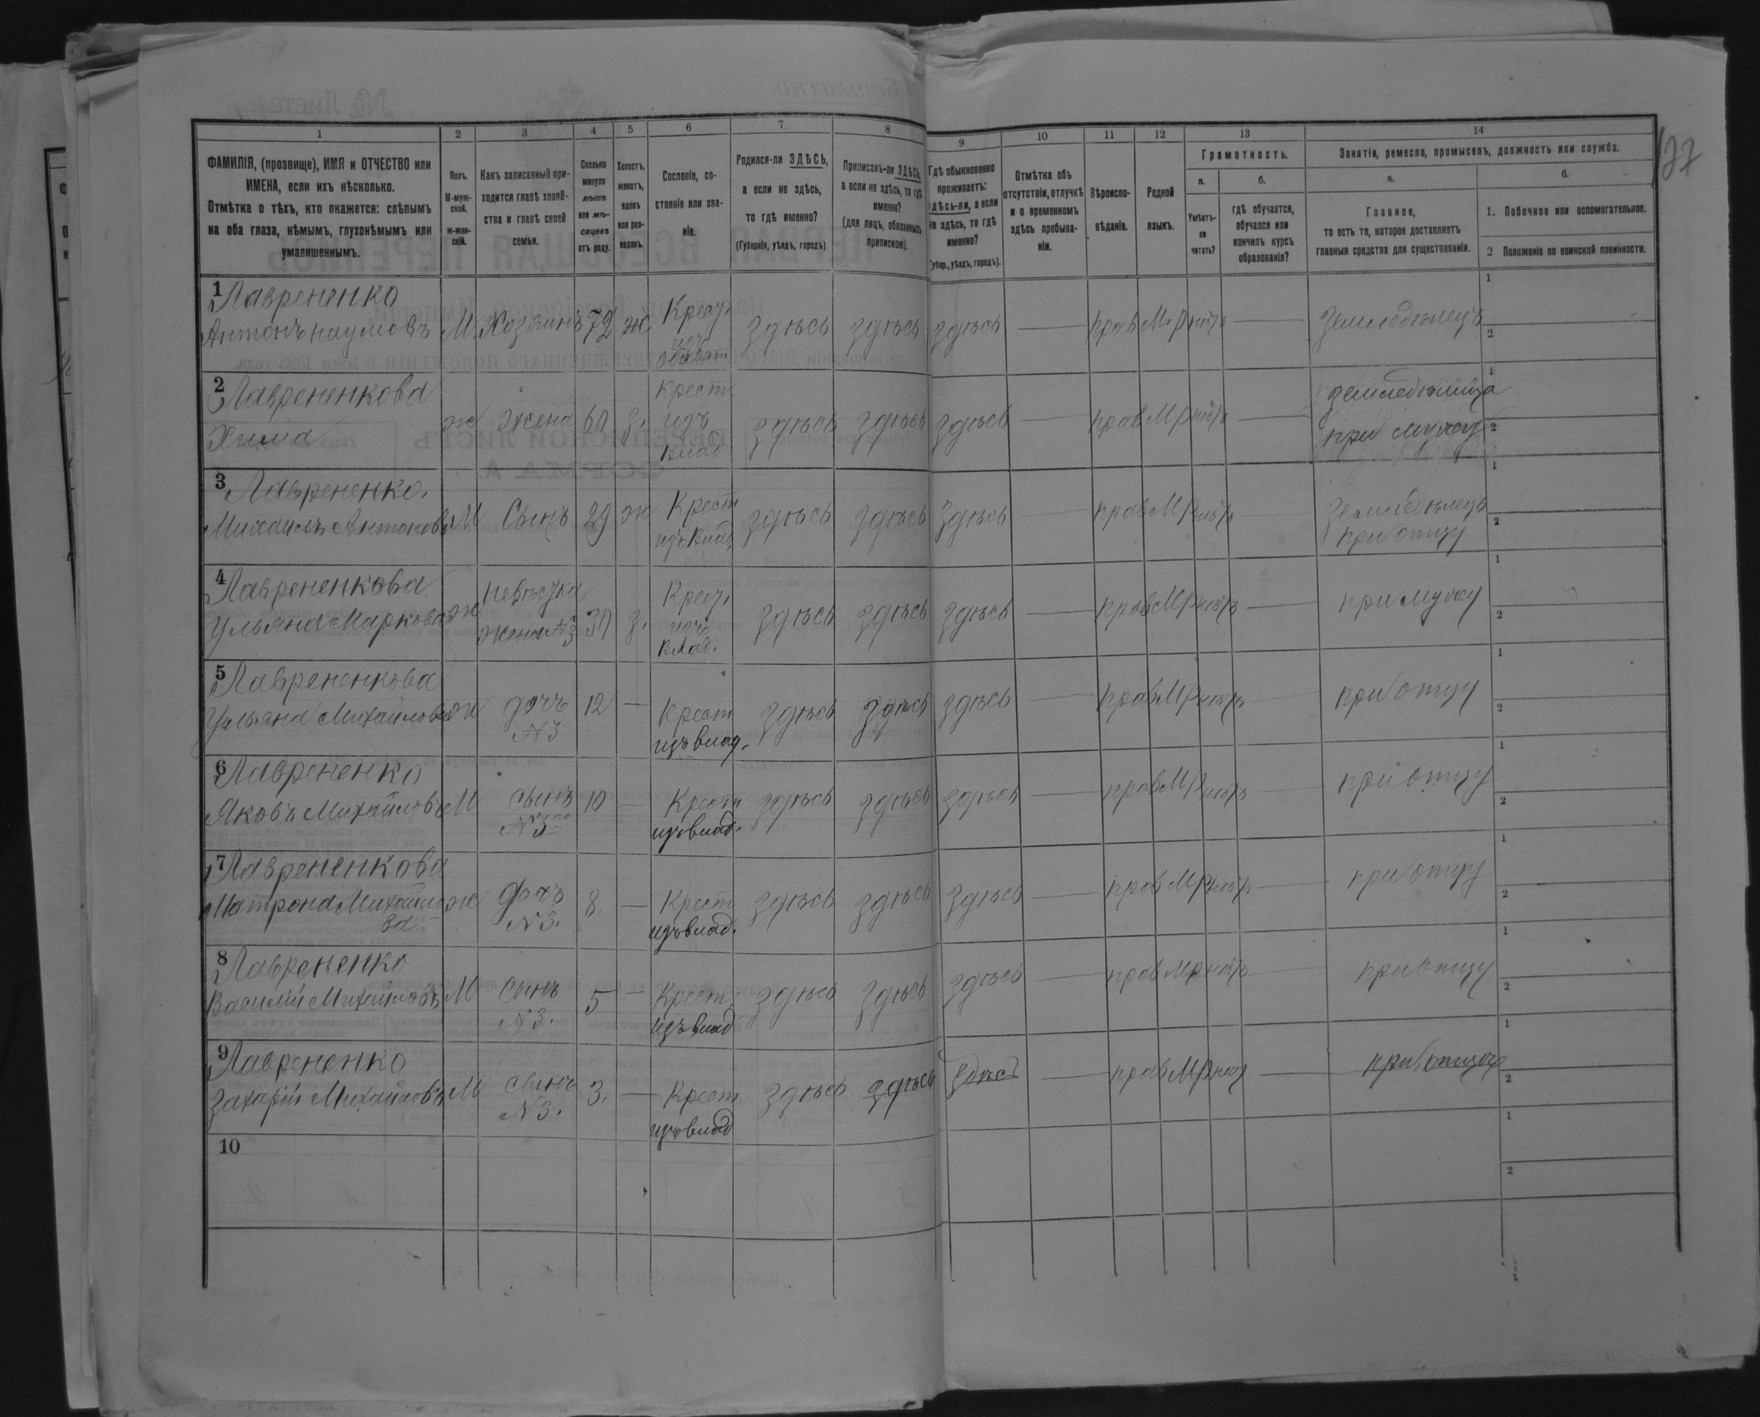 177
1 2 3 4 5 6 7 8 9 10 11 12 13 14
ФАМИЛІЯ, (прозвище), ИМЯ и ОТЧЕСТВО или
ИМЕНА, если ихъ нѣсколько.
Отмѣтка о тѣхъ, кто окажется: слѣпымъ
на оба глаза, нѣмымъ, глухонѣмымъ или
умалишеннымъ.
Полъ.
М-муж-
ской.
ж-жен-
скій.
Какъ записанный при-
ходится главѣ хозяй-
ства и главѣ своей
семьи.
Сколько
минуло
лѣтъ
или мѣ-
сяцевъ
отъ роду.
Холостъ,
женатъ,
вдовъ
или раз-
веденъ.
Сословіе, со-
стояніе или зва-
ніе.
Родился-ли ЗДѢСЬ,
а если не здѣсь,
то гдѣ именно?
(Губернія, уѣздъ, городъ).
Приписанъ-ли ЗДѢСЬ,
а если не здѣсь, то гдѣ
именно?
(для лицъ, обязанныхъ
припискою).
Гдѣ обыкновенно
проживаетъ:
здѣсь-ли, а если
не здѣсь, то гдѣ
именно?
(Губер., уѣздъ, городъ).
Отмѣтка объ
отсутствіи, отлучкѣ
и о временномъ
здѣсь пребыва-
ніи.
Вѣроиспо-
вѣданіе.
Родной
языкъ.
Грамотность.
а.
Умѣетъ-
ли
читать?
б.
гдѣ обучается,
обучался или
кончилъ курсъ
образованія?
Занятіе, ремесло, промыселъ, должность или служба.
а.
Главное,
то есть то, которое доставляетъ
главныя средства для существованія.
б.
1. Побочное или вспомогательное.
2 Положеніе по воинской повинности.
1 Лаврененко
Антонъ Наумовъ М. Хозяинъ 72 ж Крест. здѣсь здѣсь здѣсь — прав М.Р нѣтъ — Земледѣлецъ
2 Лаврененкова
Химма ж жена 60 з. Крест изъ влад здѣсь здѣсь здѣсь — прав МР нѣтъ — земледѣлица
при мужу
3 Лаврененко.
Михаилъ Антоновъ М Сынъ 29 ж Крест изъ влад. здѣсь здѣсь здѣсь — прав МР нѣтъ — земледѣлецъ
при отцу
4 Лаврененкова
Ульяна Маркова ж невѣстка жена №3 30 з. Крест. изъ влад. здѣсь здѣсь здѣсь — прав МР нѣтъ — при мужу
5 Лаврененкова
Ульяна Михайлова ж дочь №3 12 — Крест изъ влад. здѣсь здѣсь здѣсь — прав МР нѣтъ — при отцу
6 Лаврененко
Яковъ Михайловъ М сынъ №3 10 — Крест изъ влад. здѣсь здѣсь здѣсь — прав МР нѣтъ — при отцу
7 Лаврененкова
Матрона Михайло
ва ж дочь №3. 8. — Крест изъ влад. здѣсь здѣсь здѣсь — прав МР нѣтъ — при отцу
8 Лаврененко
Василій Михайловъ М Сынъ №3. 5 — Крест. изъ влад здѣсь здѣсь здѣсь — прав МР нѣтъ — при отцу
9 Лаврененко
Захарій Михайловъ М сынъ №3. 3. — Крест изъ влад здѣсь здѣсь здѣсь — прав МР нѣтъ — при отцу
10